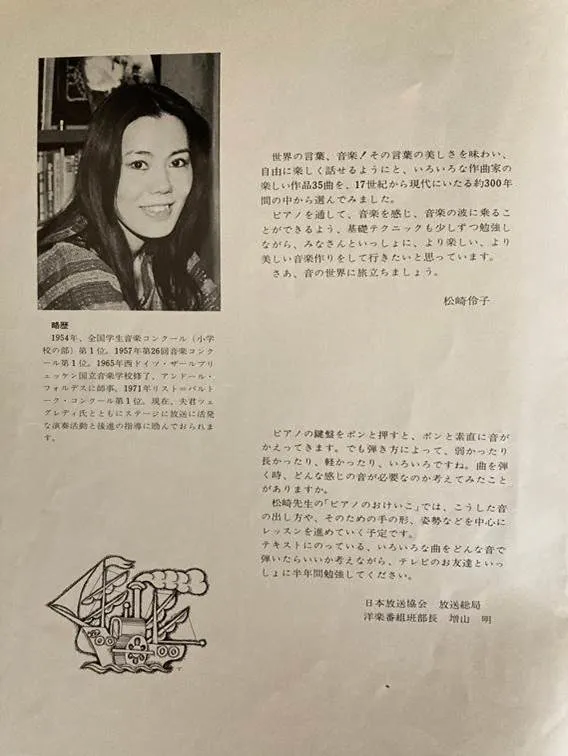 略歴
1954年、全国学生音楽コンクール（小学
校の部）第1位。1957年第26回音楽コンク
ール第1位。1965年西ドイツ・ザールブリ
ュッケン国立音楽学校修了、アンドール・
フォルデスに師事。1971年リスト＝バルト
ーク・コンクール第1位。現在、夫君ツェ
グレディ氏とともにステージに放送に活発
な演奏活動と後進の指導に励んでおられま
す。
世界の言葉、音楽！その言葉の美しさを味わい、
自由に楽しく話せるようにと、いろいろな作曲家の
楽しい作品35曲を、17世紀から現代にいたる約300年
間の中から選んでみました。
ピアノを通して、音楽を感じ、音楽の波に乗るこ
とができるよう、基礎テクニックも少しずつ勉強し
ながら、みなさんといっしょに、より楽しい、より
美しい音楽作りをして行きたいと思っています。
さあ、音の世界に旅立ちましょう。
松崎伶子
ピアノの鍵盤をポンと押すと、ポンと素直に音が
かえってきます。でも弾き方によって、弱かったり
長かったり、軽かったり、いろいろですね。曲を弾
く時、どんな感じの音が必要なのか考えてみたこと
がありますか。
松崎先生の「ピアノのおけいこ」では、こうした音
の出し方や、そのための手の形、姿勢などを中心に
レッスンを進めていく予定です。
テキストにのっている、いろいろな曲をどんな音で
弾いたらいいか考えながら、テレビのお友達といっ
しょに半年間勉強してください。
日本放送協会　放送総局
洋楽番組班部長　増山　明